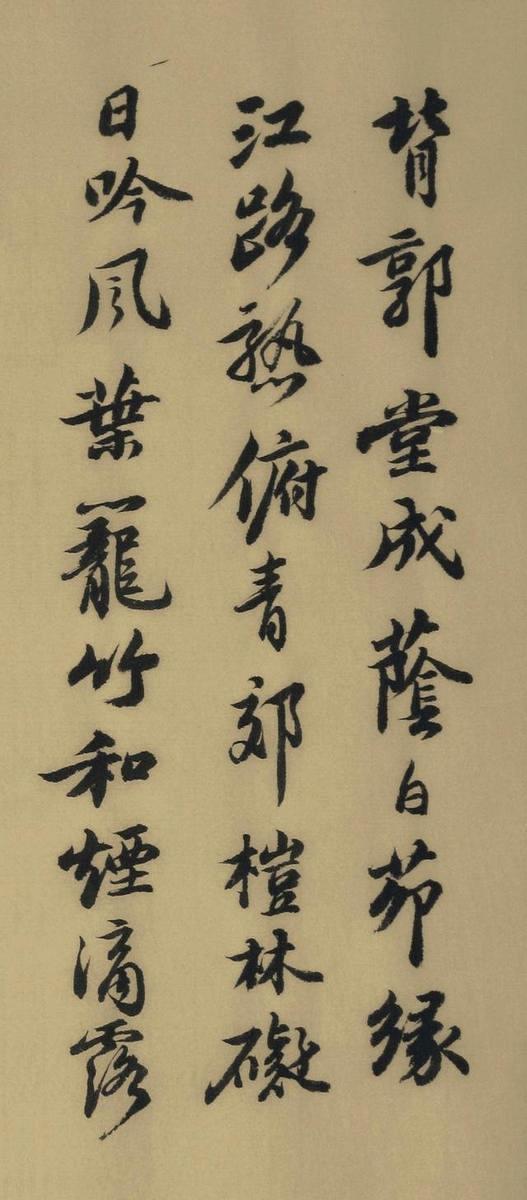 背郭堂成蔭白茆緣
江路熟俯青郊榿林礙
日吟風葉籠竹和煙滴露